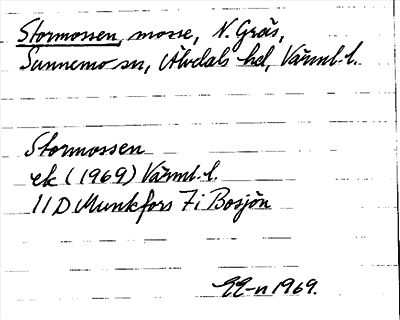 Stormossen, mosse, N. Gräs,
Sunnemo sn, Älvdals hd, Värml. l.
Stormossen
ek (1969) Värml. l.
11 D Munkfors 7 i Bosjön
EE-n 1969.